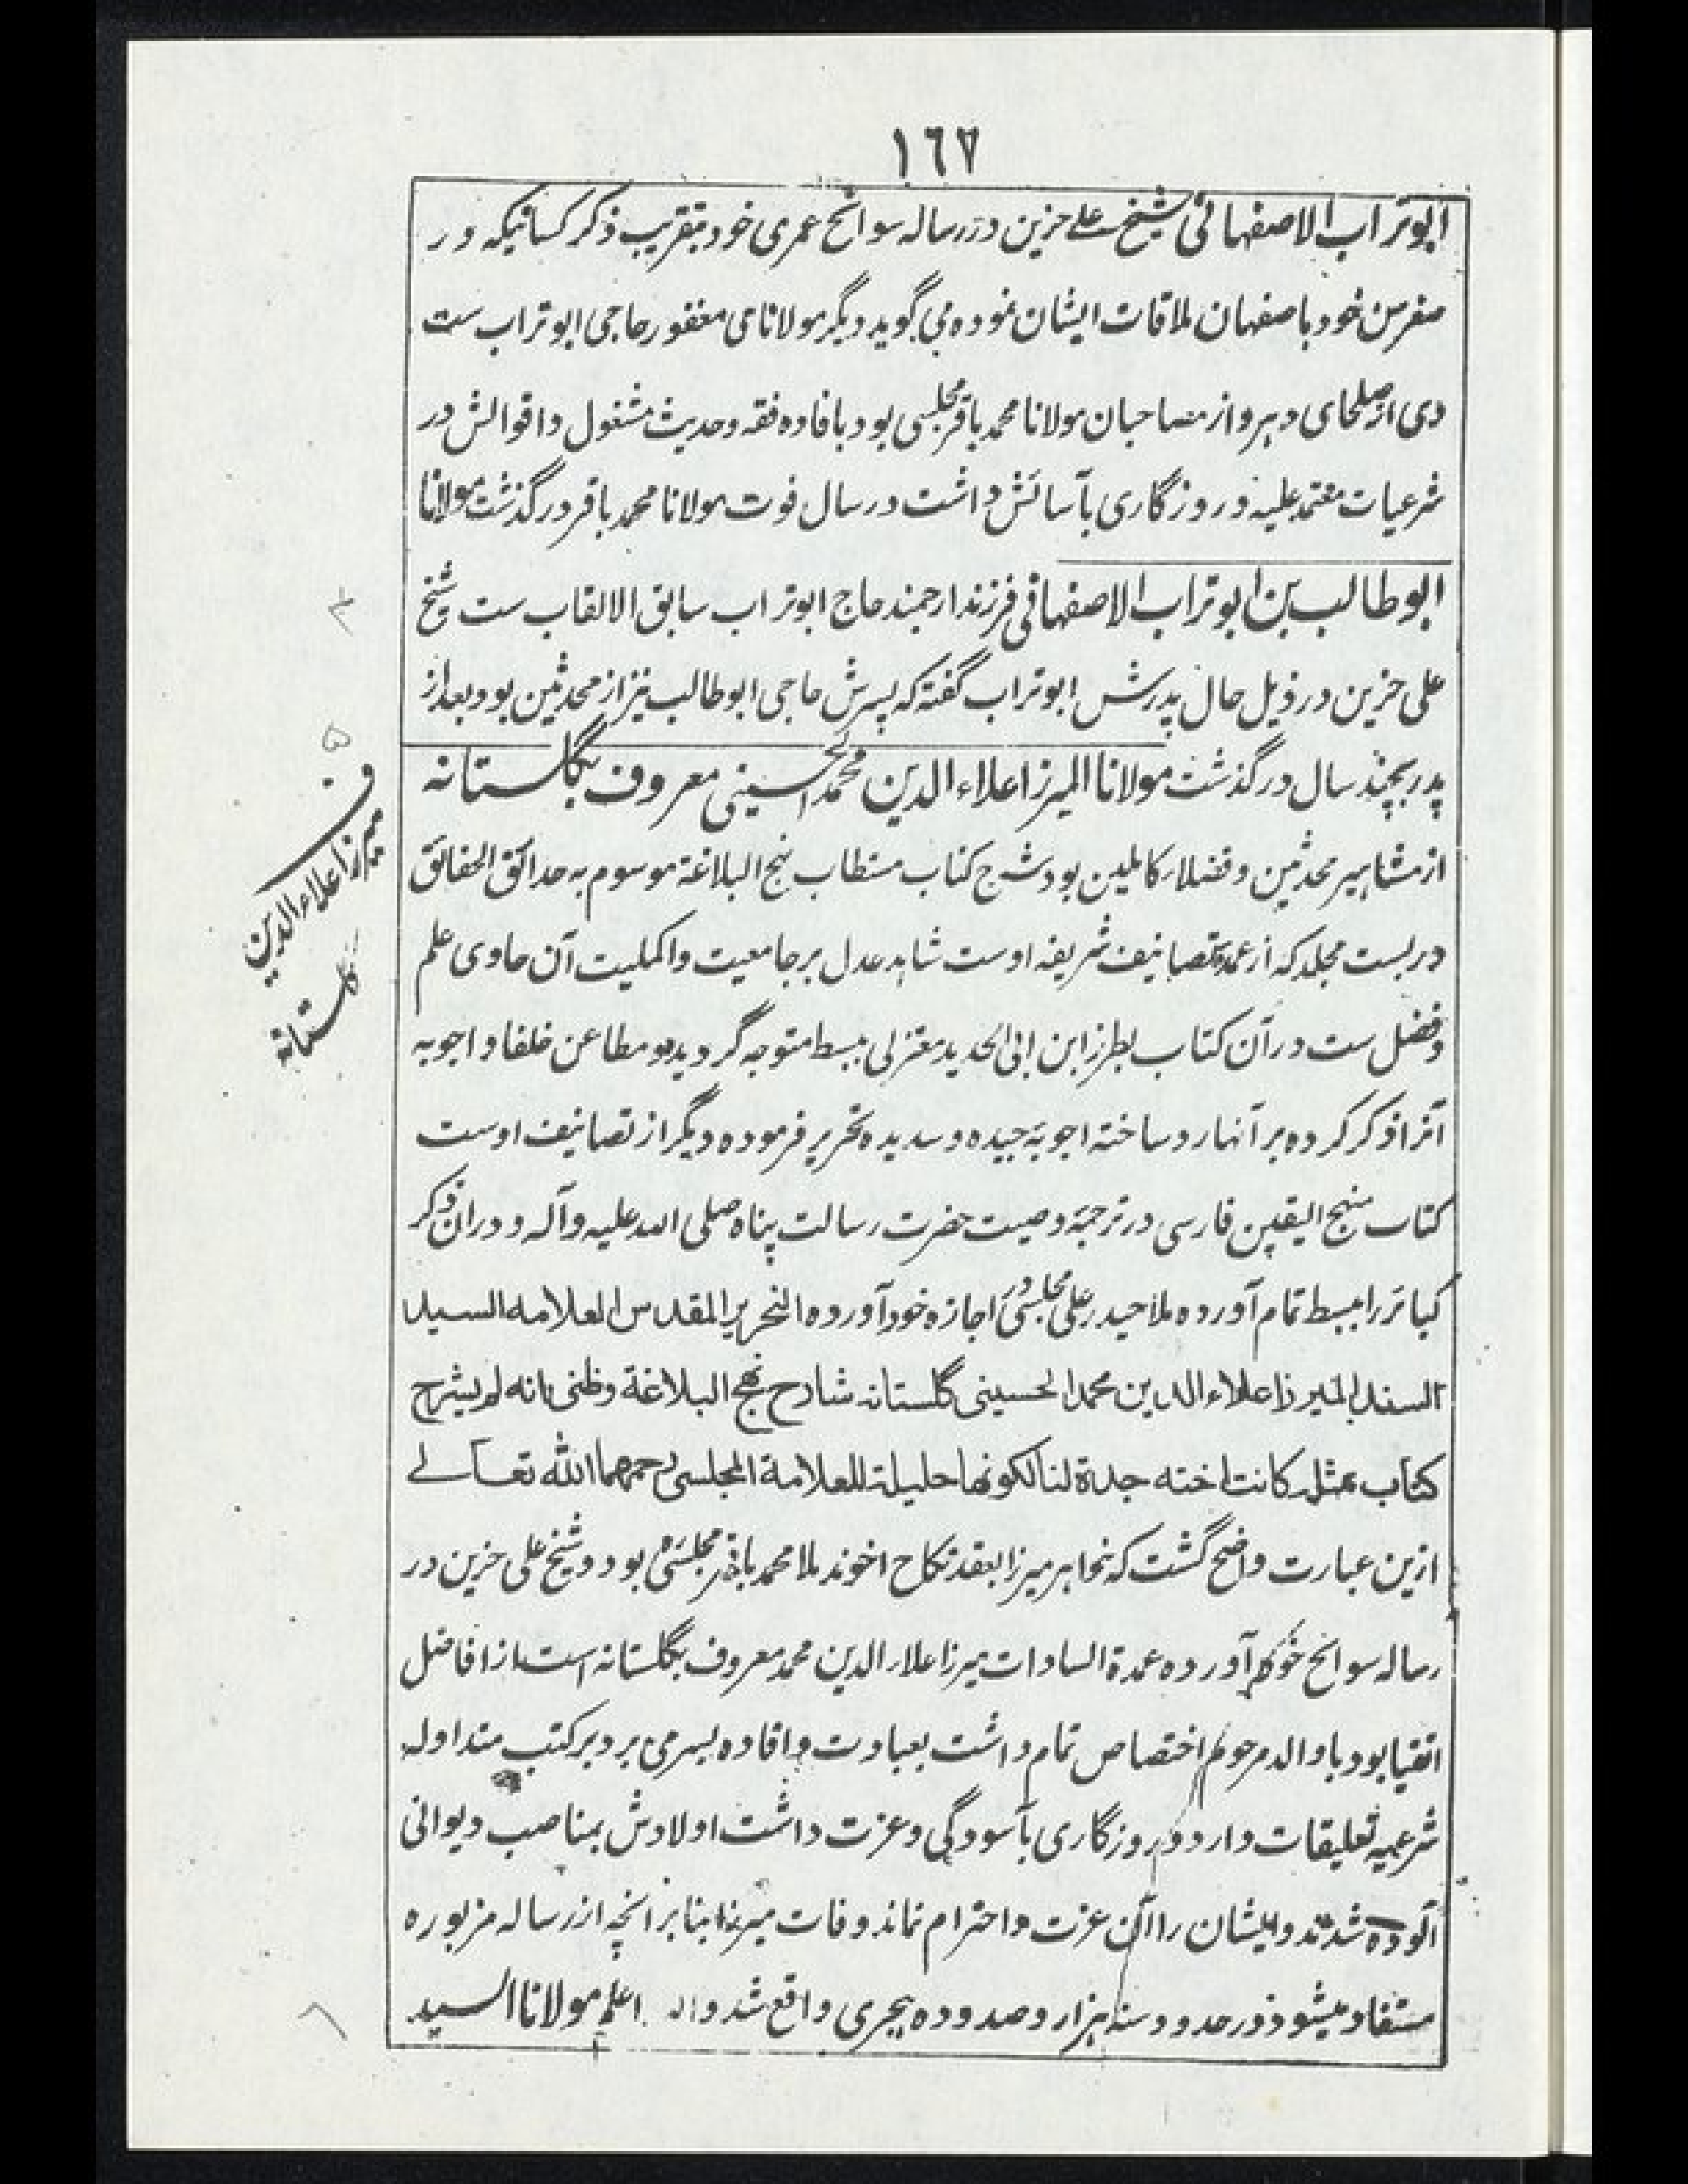 ١٦٧
ابو تراب الاصفهانی شیخ علی حزین در رساله سوانح عمری خود بتقریب ذکر کسانیکه در
صغر سن خود باصفهان ملاقات ایشان نموده می گوید دیگر مولانای مغفور حاجی ابو تراب ست
وی از صلحای دهر و از مصاحبان مولانا محمد باقر مجلسی بود بافاده فقه و حدیث مشغول و اقوالش در
شرعیات معتمد علیه و روزگاری بآسائش داشت در سال فوت مولانا محمد باقر درگذشت مولانا
ابو طالب بن ابو تراب الاصفهانی فرزند ارجمند حاج ابو تراب سابق الالقاب ست شیخ
علی حزین در ذیل حال پدرش ابو تراب گفته که پسرش حاجی ابو طالب نیز از محدثین بود بعد از
پدر بچند سال درگذشت مولانا المیرزا علاء الدین محمد الحسینی معروف بگلستانه
از مشاهیر محدثین و فضلاء کاملین بود شرح کتاب مستطاب نهج البلاغة موسوم به حدائق الحقائق
در بست مجلد که از عمده تصانیف شریفه اوست شاهد عدل بر جامعیت و اکملیت آن حاوی علم
و فضل ست در آن کتاب بطرز ابن ابی الحدید معتزلی ببسط متوجه گردیده و مطاعن خلفا و اجوبه
آنرا ذکر کرده بر آنها رد ساخته اجوبهٔ جیده و سدیده تحریر فرموده دیگر از تصانیف اوست
کتاب منهج الیقین فارسی در ترجمهٔ وصیت حضرت رسالت پناه صلی الله علیه وآله و دران ذکر
کبائر را ببسط تمام آورده ملا حیدر علی مجلسی در اجازه خود آورده والنحریر المقدس العلامه السید
السند المیرزا علاء الدین محمد الحسینی گلستانه شارح نهج البلاغة وظنی انه لم یشرح
کتاب بمثله کانت اخته جدة لنا لکونها حلیلة للعلامة المجلسی رحمهما الله تعالے
ازین عبارت واضح گشت که خواهر میرزا بعقد نکاح اخوند ملا محمد باقر مجلسی بود و شیخ علی حزین در
رساله سوانح خود آورده عمدة السادات میرزا علاء الدین محمد معروف بگلستانه است از افاضل
اتقیا بود با والد مرحوم اختصاص تمام داشت بعبادت و افاده بسر می برد بر کتب متداوله
شرعیه تعلیقات دارد و روزگاری بآسودگی و عزت داشت اولادش بمناصب دیوانی
آلوده شدند و ایشان را آن عزت و احترام نماند وفات میرزا بنا بر انچه از رساله مزبوره
مستفاد میشود در حدود سنه هزار و صد و ده هجری واقع شد والله اعلم مولانا السید
۴
۵
ف
میرزا علاء الدین
گلستانه
۶